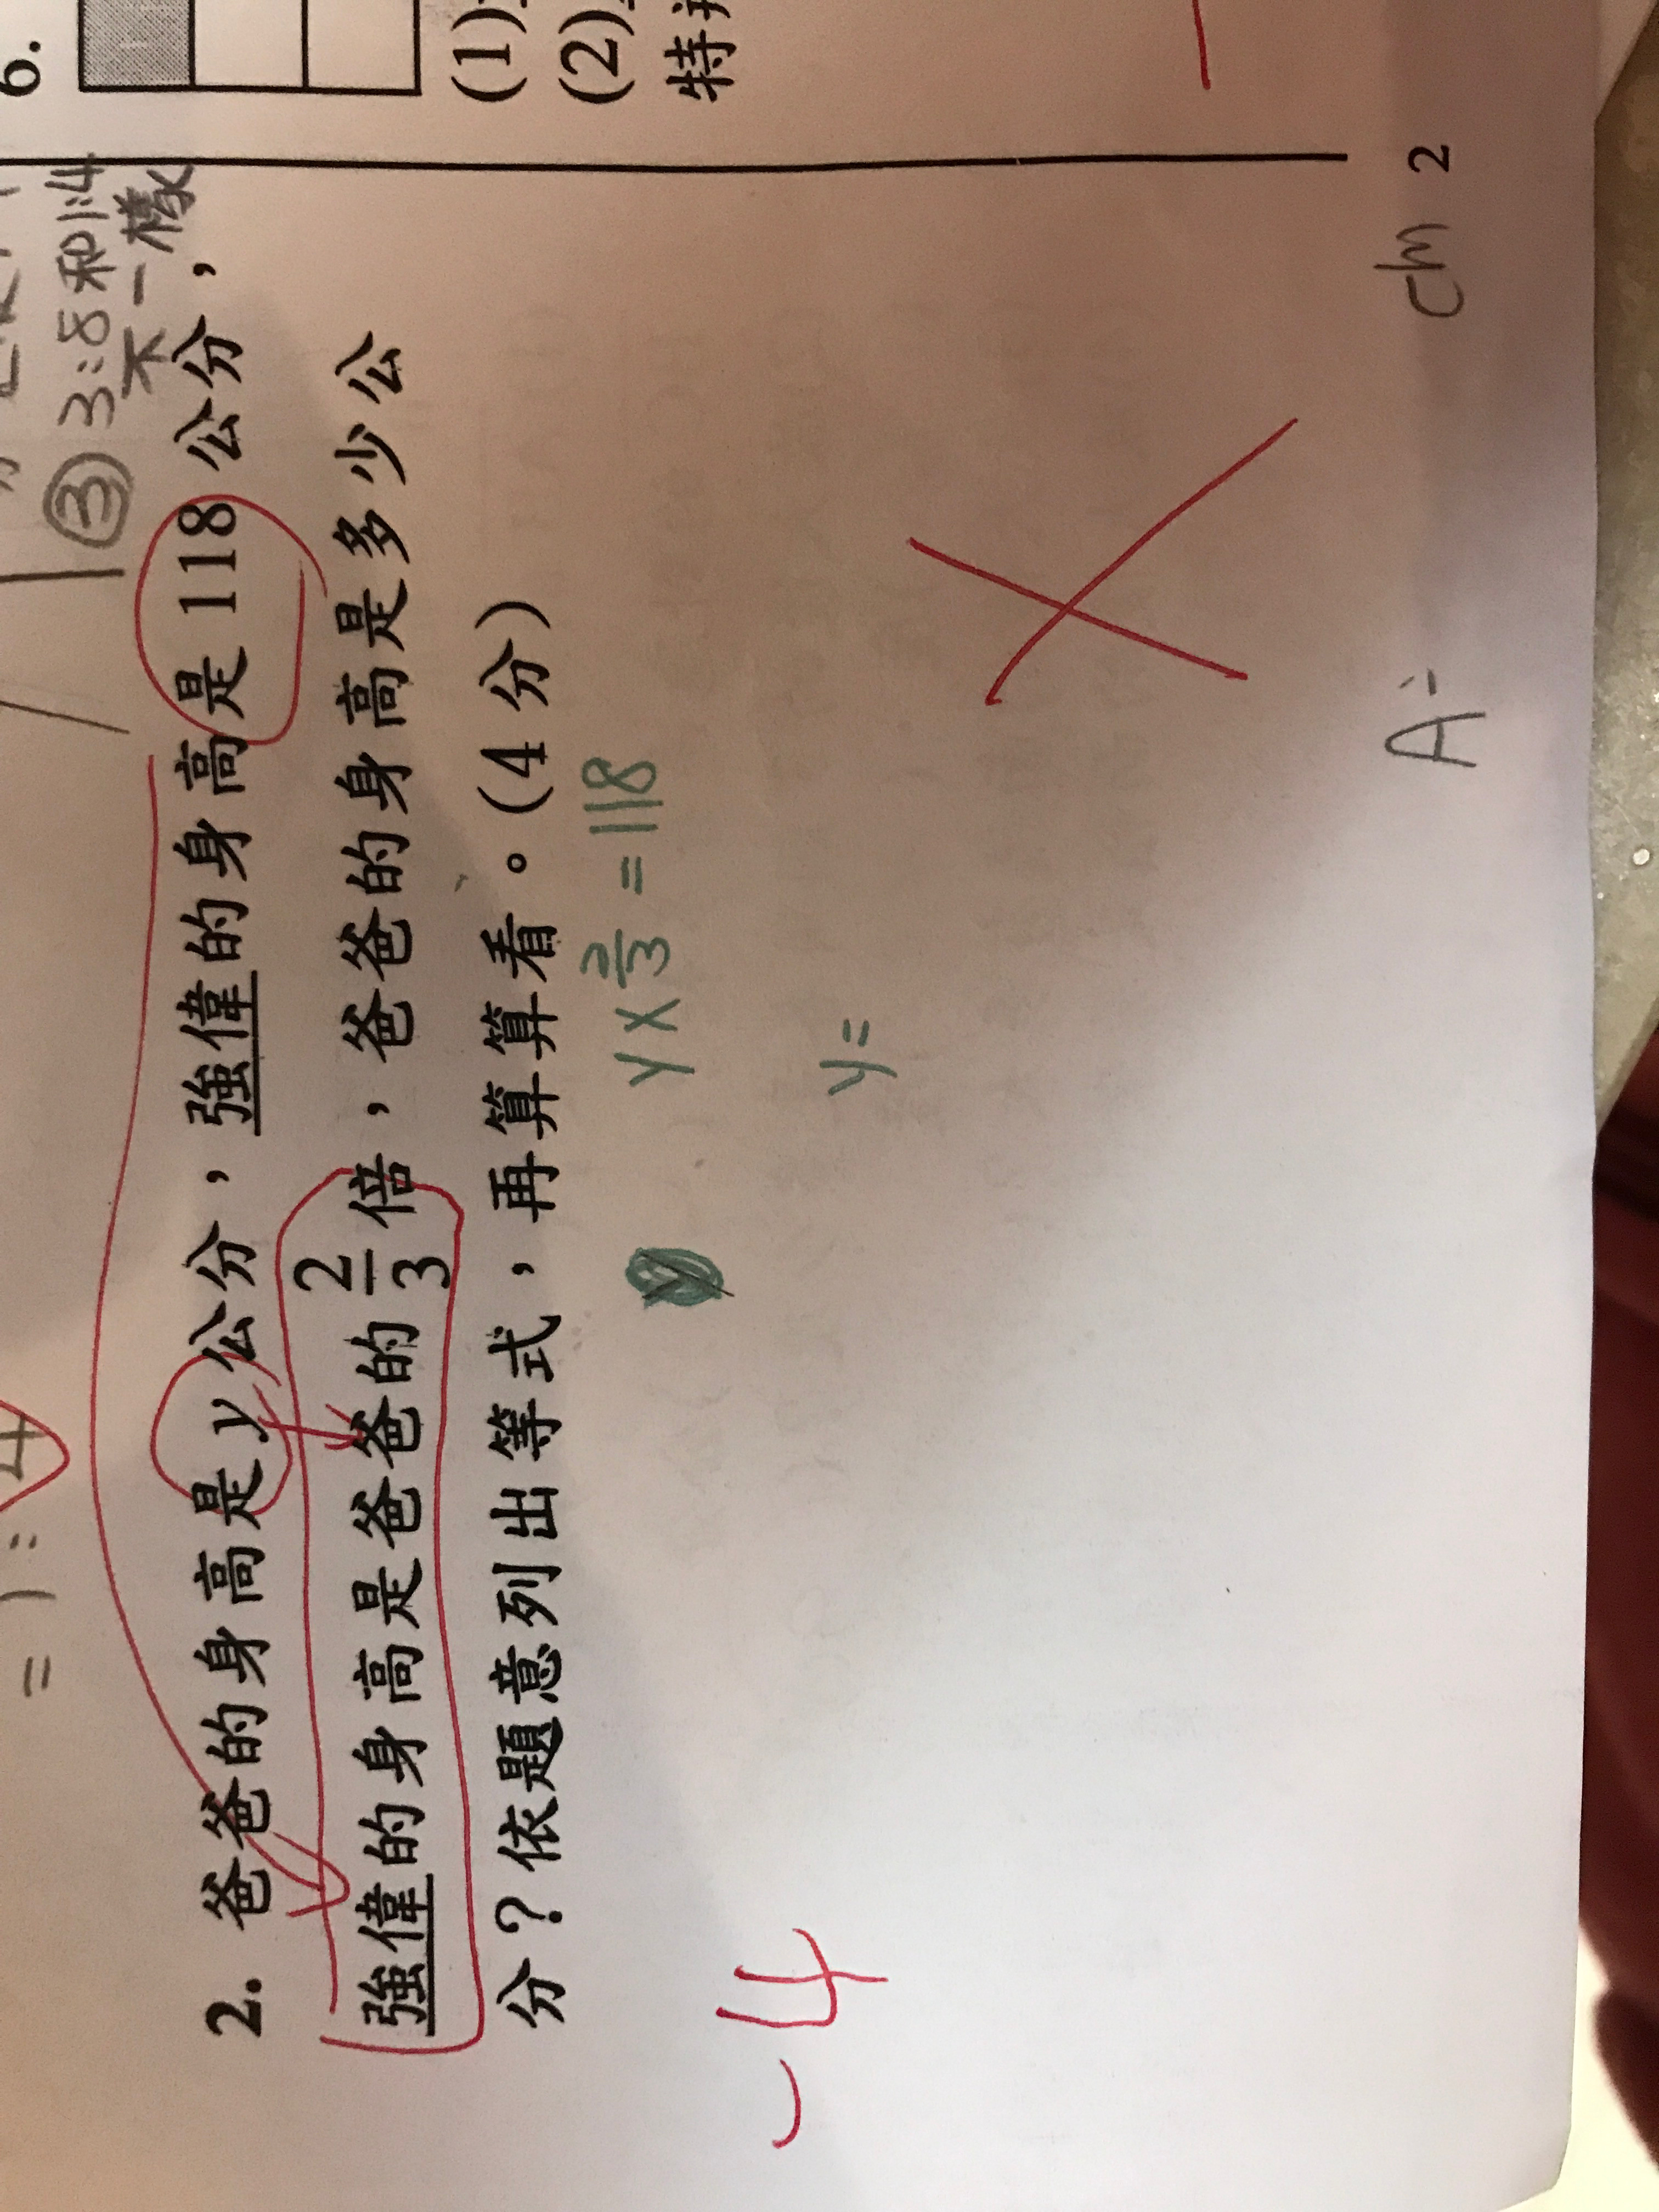 = 1:4
③ 3:8和1:4
不一樣
2. 爸爸的身高是 y 公分，強偉的身高是 118 公分，
強偉的身高是爸爸的 2/3 倍，爸爸的身高是多少公
分？依題意列出等式，再算算看。(4 分)
y × 2/3 = 118
y =
-4
A:
cm
2
6.
(1)
(2)
特